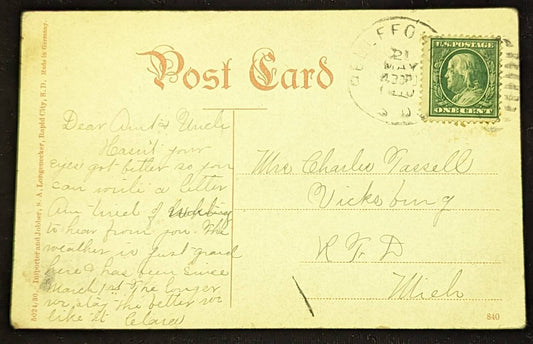 Post Card
U.S. POSTAGE
ONE CENT
Dear Aunt & Uncle
Hasn't your
eyes got better so you
can write a letter
Am tired of
to hear from you. The
weather is just grand
here & has been since
March 1st The longer
we stay the better we
like it Clara
Mrs Charles Tassell
Vicksburg
R. F. D
Mich
5024/30 Importer and Jobber, S. A. Longenecker, Rapid City, S. D. Made in Germany.
840